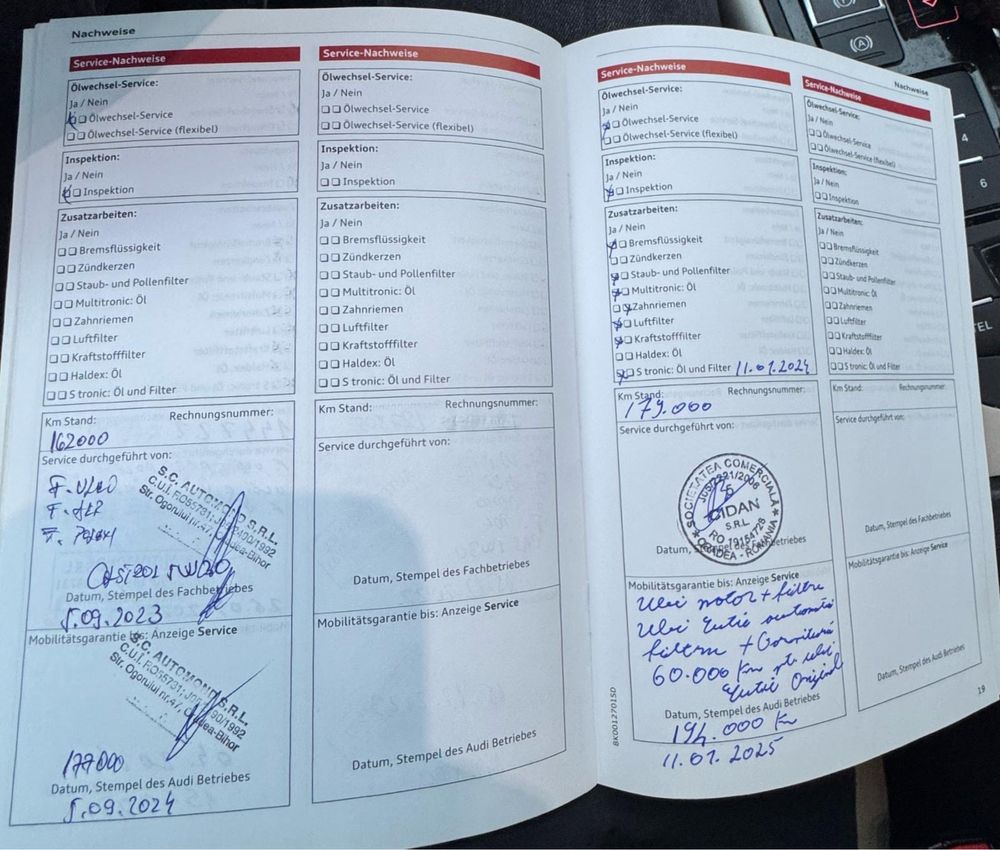 Nachweise
Service-Nachweise
Ölwechsel-Service:
Ja / Nein
Ölwechsel-Service
Ölwechsel-Service (flexibel)
Inspektion:
Ja / Nein
Inspektion
Zusatzarbeiten:
Ja / Nein
Bremsflüssigkeit
Zündkerzen
Staub- und Pollenfilter
Multitronic: Öl
Zahnriemen
Luftfilter
Kraftstofffilter
Haldex: Öl
S tronic: Öl und Filter
Km Stand: Rechnungsnummer:
162000
Service durchgeführt von:
S.C. AUTOMOND S.R.L.
Str. Ogorului nr.47, Oradea-Bihor
F.
F.
F.
CASTROL 5W30
Datum, Stempel des Fachbetriebes
5.09.2023
Mobilitätsgarantie bis: Anzeige Service
S.C. AUTOMOND S.R.L.
Str. Ogorului nr.47, Oradea-Bihor
177000
Datum, Stempel des Audi Betriebes
5.09.2024
Service-Nachweise
Ölwechsel-Service:
Ja / Nein
Ölwechsel-Service
Ölwechsel-Service (flexibel)
Inspektion:
Ja / Nein
Inspektion
Zusatzarbeiten:
Ja / Nein
Bremsflüssigkeit
Zündkerzen
Staub- und Pollenfilter
Multitronic: Öl
Zahnriemen
Luftfilter
Kraftstofffilter
Haldex: Öl
S tronic: Öl und Filter
Km Stand: Rechnungsnummer:
Service durchgeführt von:
Datum, Stempel des Fachbetriebes
Mobilitätsgarantie bis: Anzeige Service
Datum, Stempel des Audi Betriebes
Service-Nachweise
Ölwechsel-Service:
Ja / Nein
Ölwechsel-Service
Ölwechsel-Service (flexibel)
Inspektion:
Ja / Nein
Inspektion
Zusatzarbeiten:
Ja / Nein
Bremsflüssigkeit
Zündkerzen
Staub- und Pollenfilter
Multitronic: Öl
Zahnriemen
Luftfilter
Kraftstofffilter
Haldex: Öl
S tronic: Öl und Filter 11.01.2024
Km Stand:
179.000
Service durchgeführt von:
SOCIETATEA COMERCIALĂ
CIDAN
S.R.L.
RO 79154728
ORADEA - ROMANIA
Datum, Stempel des Fachbetriebes
Mobilitätsgarantie bis: Anzeige Service
Ulei motor + filtre
Ulei Cutie automată
filtru + Garnitură
60.000 Km pt. ulei
Cutie Original
Datum, Stempel des Audi Betriebes
194.000 Km
11.01.2025
BK0012701SD
Nachweise
Service-Nachweise
Ölwechsel-Service:
Ja / Nein
Ölwechsel-Service
Ölwechsel-Service (flexibel)
Inspektion:
Ja / Nein
Inspektion
Zusatzarbeiten:
Ja / Nein
Bremsflüssigkeit
Zündkerzen
Staub- und Pollenfilter
Multitronic: Öl
Zahnriemen
Luftfilter
Kraftstofffilter
Haldex: Öl
S tronic: Öl und Filter
Km Stand: Rechnungsnummer:
Service durchgeführt von:
Datum, Stempel des Fachbetriebes
Mobilitätsgarantie bis: Anzeige Service
Datum, Stempel des Audi Betriebes
19
(A)
4
6
TEL